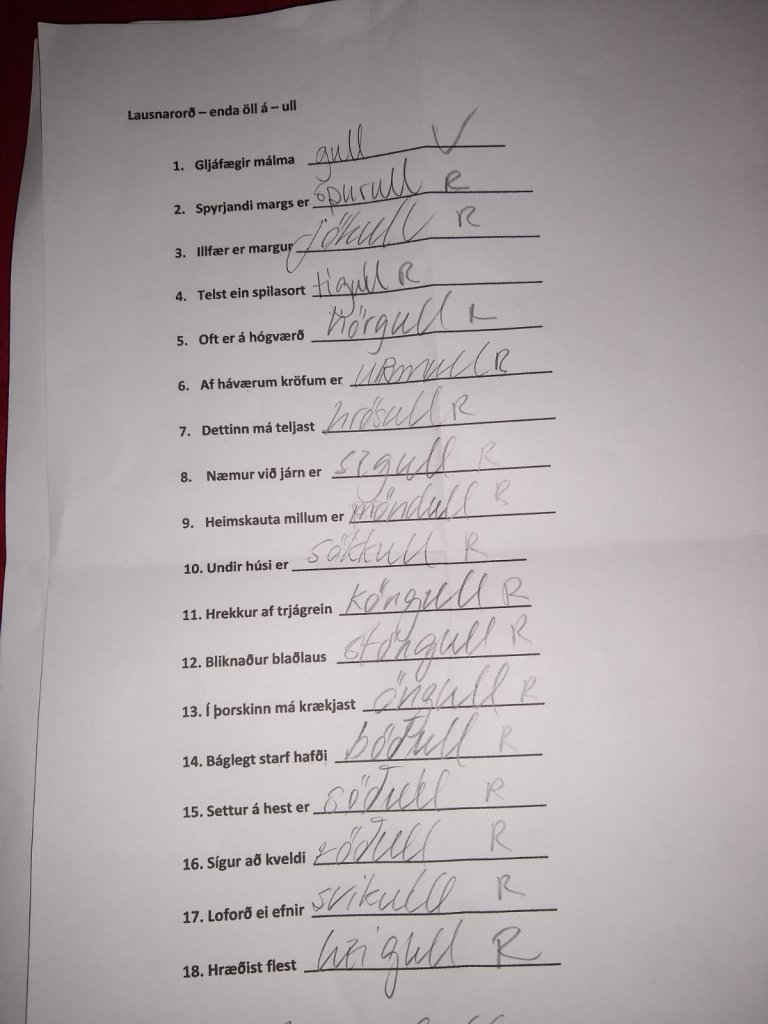 Lausnarorð – enda öll á – ull
1. Gljáfægir málma gull ✓
2. Spyrjandi margs er spurull R
3. Illfær er margur jökull R
4. Telst ein spilasort tigull R
5. Oft er á hógværð hörgull R
6. Af háværum kröfum er URmull R
7. Dettinn má teljast hrösull R
8. Næmur við járn er segull R
9. Heimskauta millum er möndull R
10. Undir húsi er sökkull R
11. Hrekkur af trjágrein köngull R
12. Bliknaður blaðlaus stöngull R
13. Í þorskinn má krækjast öngull R
14. Báglegt starf hafði böðull R
15. Settur á hest er söðull R
16. Sígur að kveldi röðull R
17. Loforð ei efnir svikull R
18. Hræðist flest heigull R